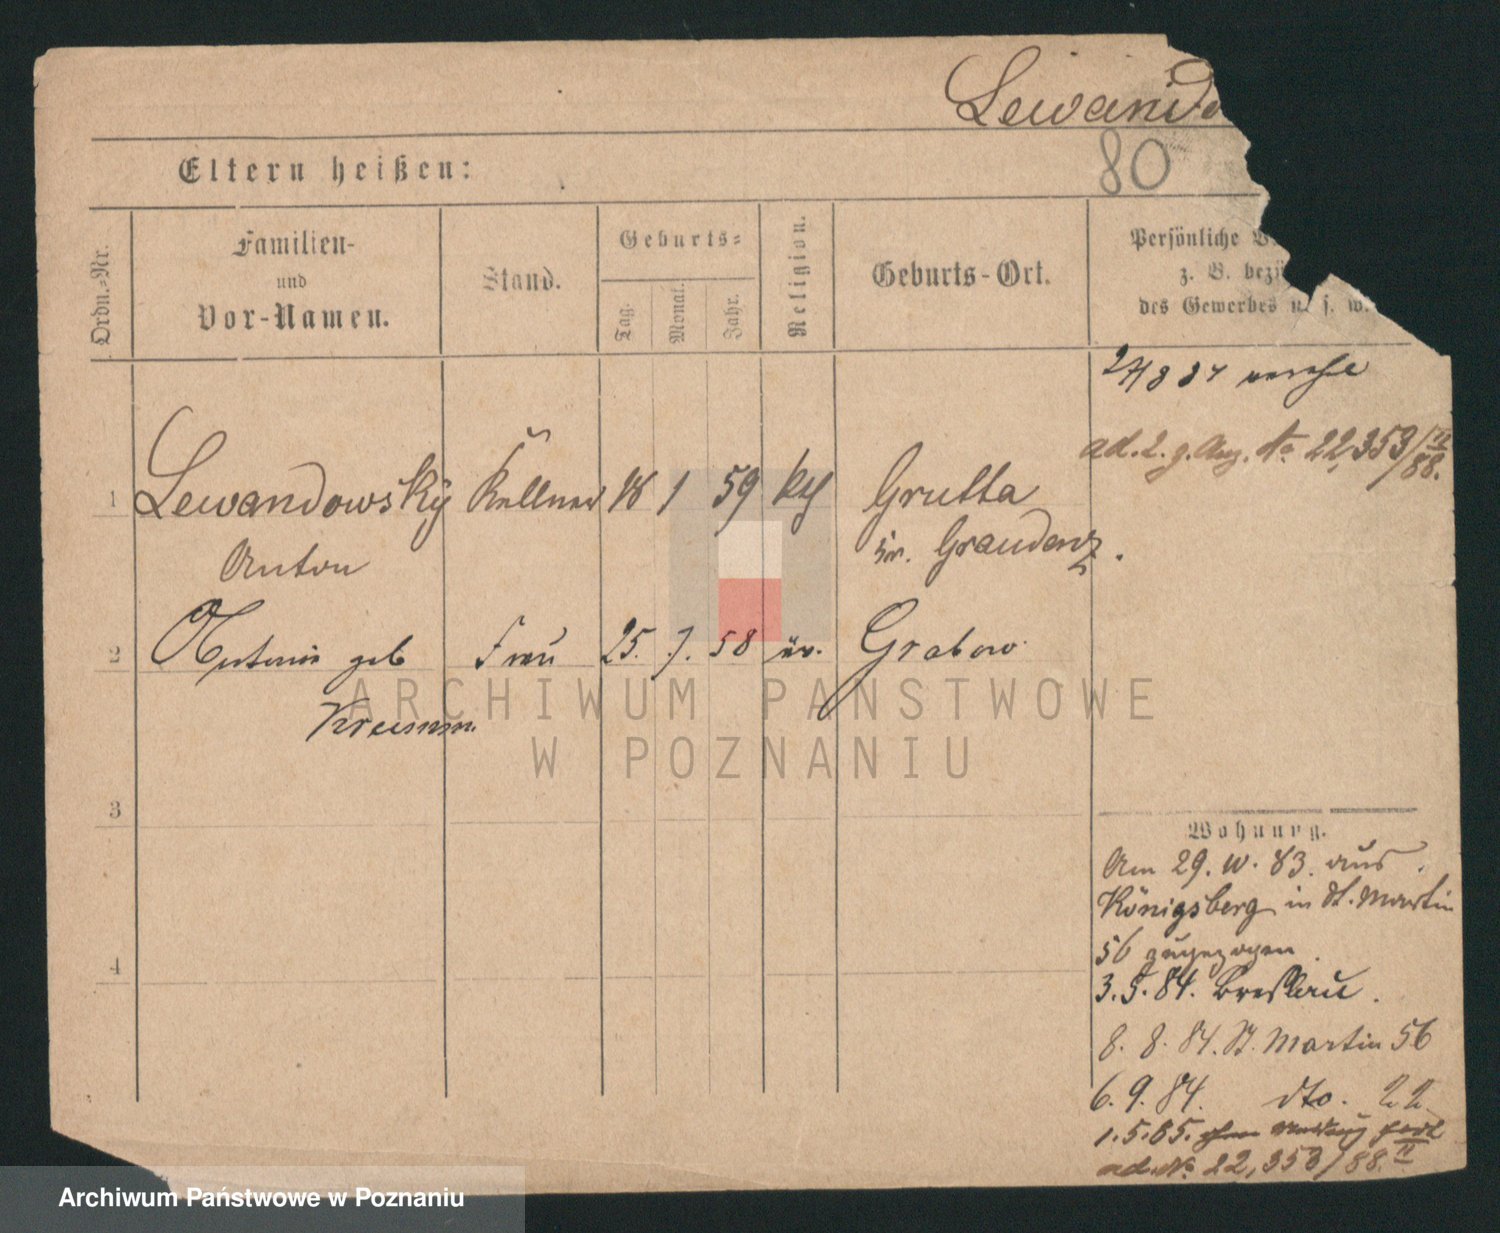 Lewando
80
Eltern heißen:
Ordn.-Nr.
Familien-
und
Vor-Namen.
Stand.
Geburts-
Tag.
Monat.
Jahr.
Religion.
Geburts-Ort.
Persönliche
z. B. bezü
des Gewerbes u. s. w.
27/8 87
ad. 2. g. Aug. No 22,353/88. II
1 Lewandowský Kellner 18 1 59 kth Grutta
Anton
kr. Graudenz.
2 Antonie geb Frau 25. 7. 58 ev. Grabow
Krumm.
3
4
Wohnung.
Am 29. IV. 83. aus
Königsberg in St. Martin
56 zugezogen.
3. 5. 84. Breslau.
8. 8. 84. St. Martin 56
6. 9. 84. dto. 22
1. 5. 85. ohne
ad. No 22,353/88. II
ARCHIWUM PAŃSTWOWE
W POZNANIU
Archiwum Państwowe w Poznaniu